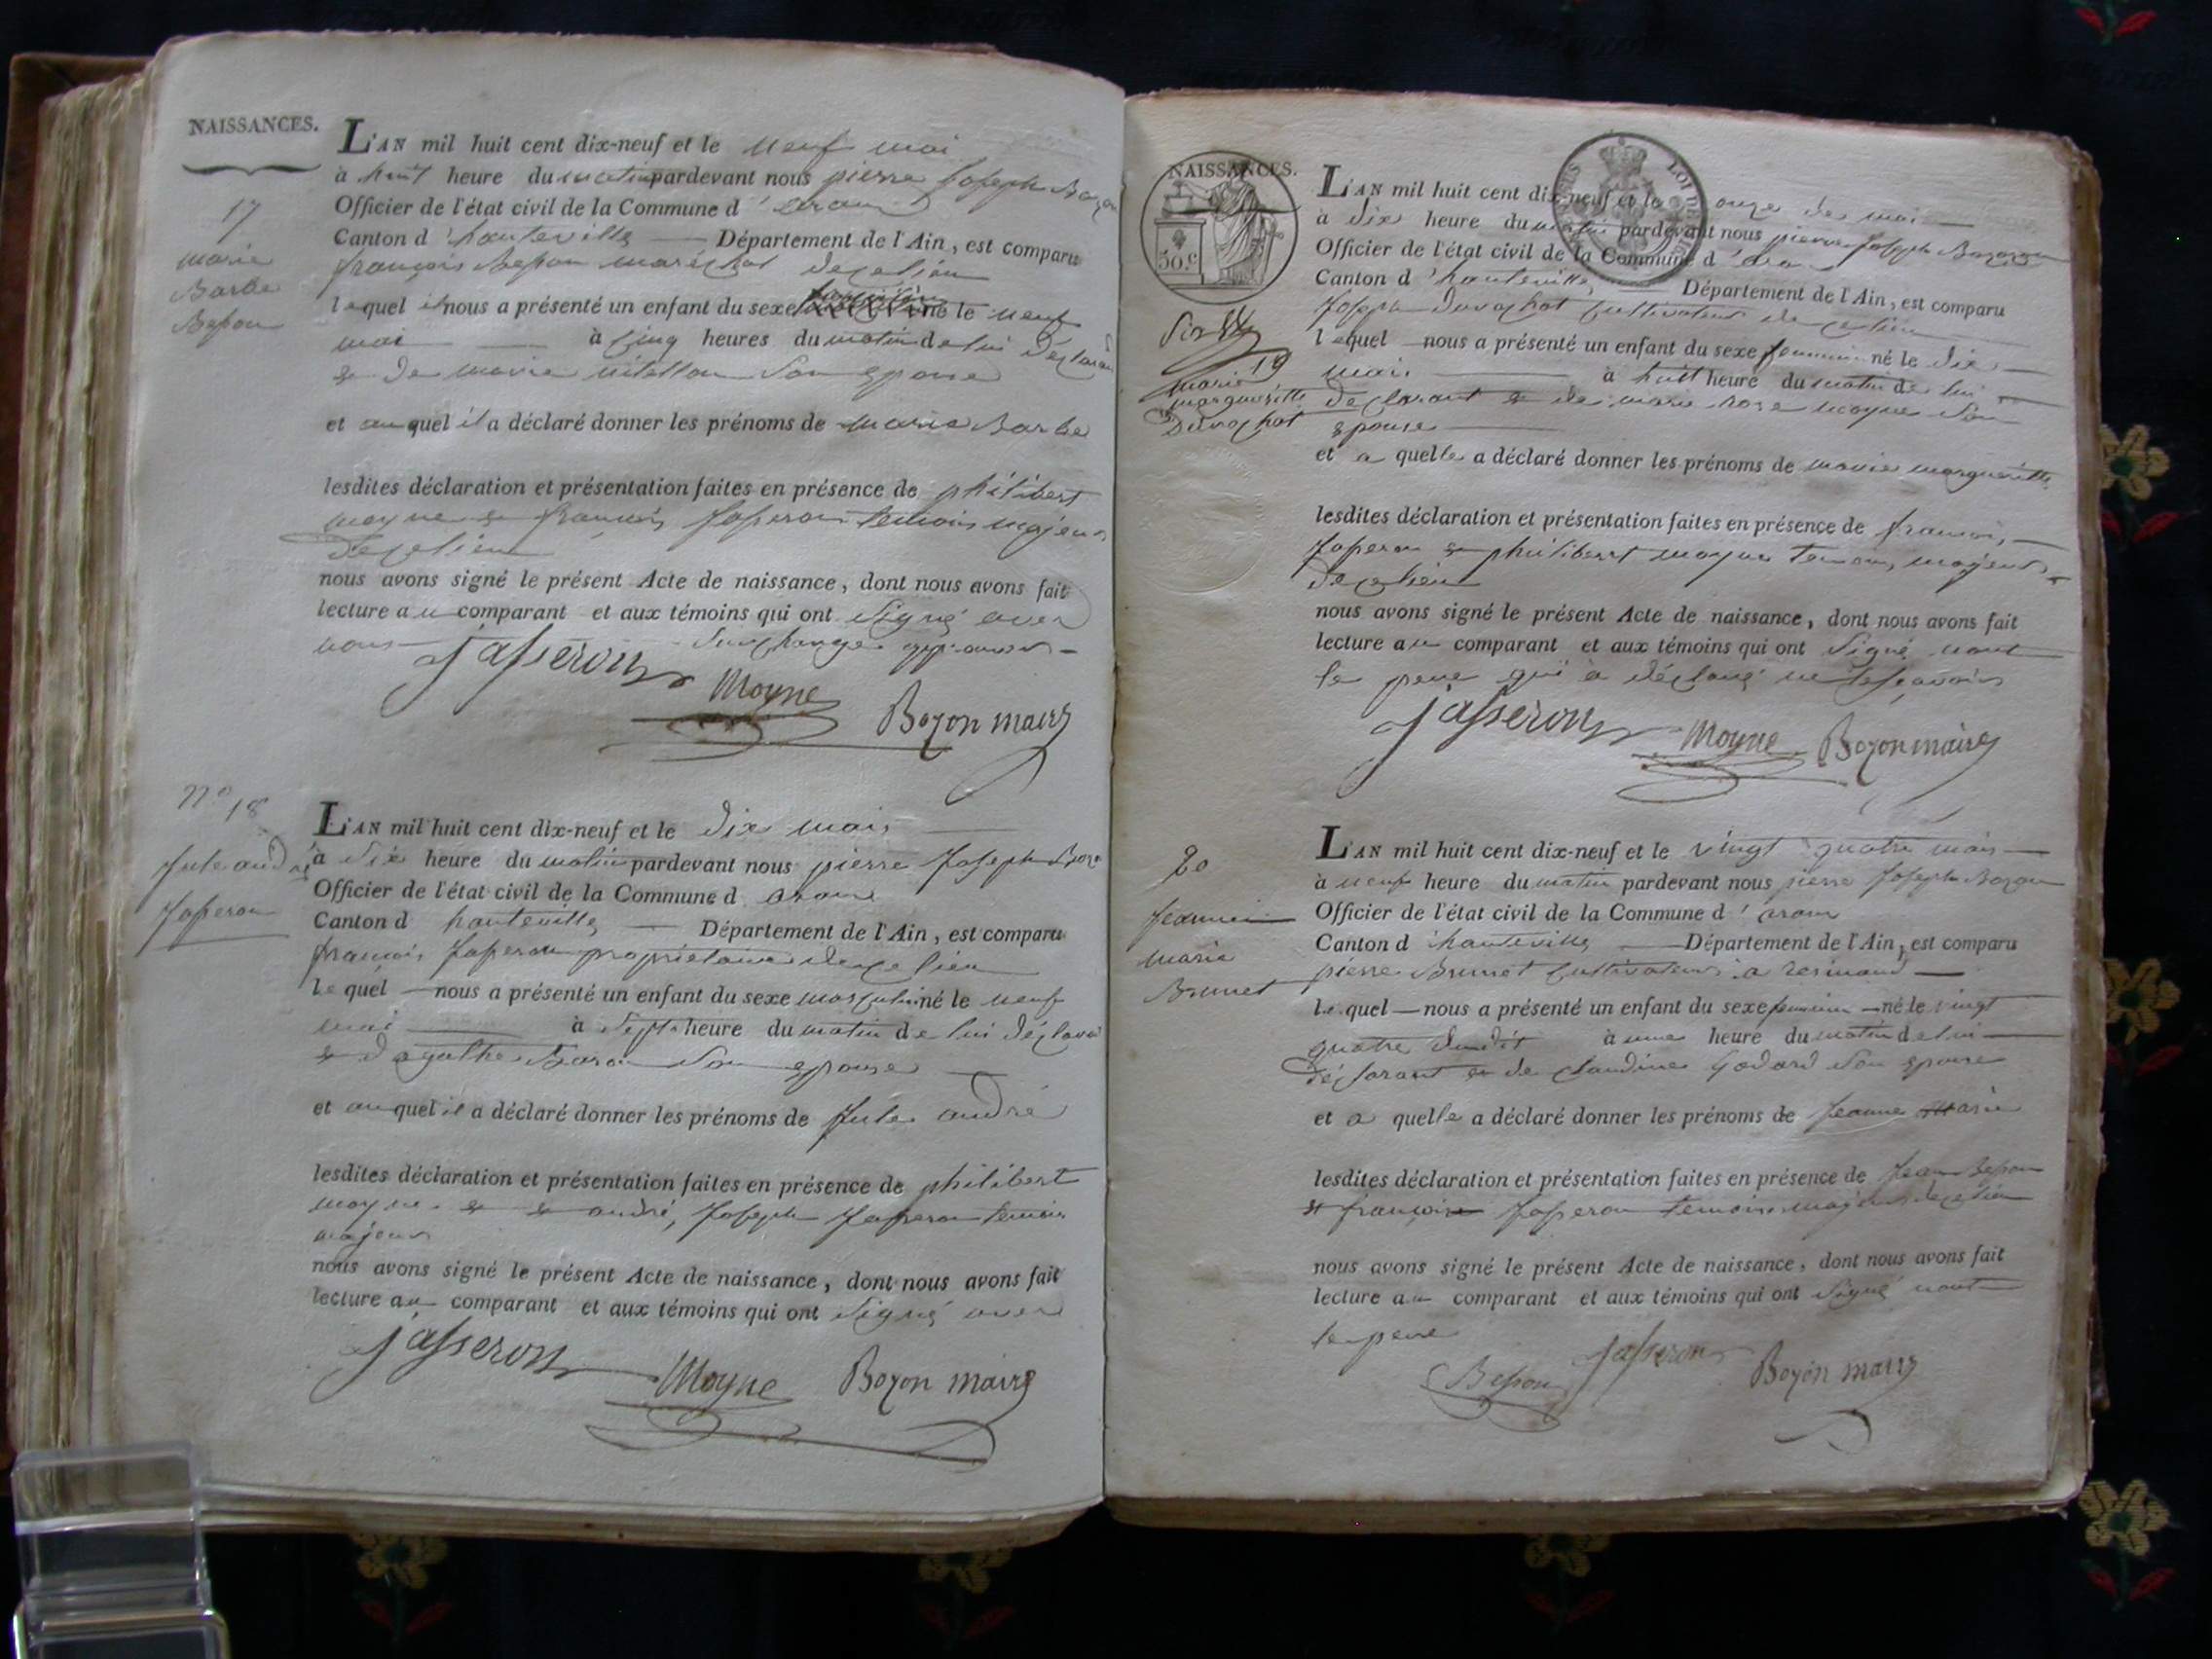 NAISSANCES.
17
marie
Barbe
Besson
L'AN mil huit cent dix-neuf et le neuf mai
à huit heure du matin pardevant nous pierre Joseph Bozon
Officier de l'état civil de la Commune d'aranc
Canton d'hauteville Département de l'Ain, est comparu
françois Besson maréchal decelieu
lequel il nous a présenté un enfant du sexe né le neuf
mai à cinq heures du matin de lui déclarant
& de marie son epouse
et auquel il a déclaré donner les prénoms de marie Barbe
lesdites déclaration et présentation faites en présence de philibert
moyne & françois Jasseron temoins majeurs
decelieu
nous avons signé le présent Acte de naissance, dont nous avons fait
lecture au comparant et aux témoins qui ont signé avec
nous
Jasseron Moyne Bozon maire
n° 18
Jule andré
Jasseron
L'AN mil huit cent dix-neuf et le dix mai
à dix heure du matin pardevant nous pierre Joseph Bozon
Officier de l'état civil de la Commune d aranc
Canton d hauteville Département de l'Ain, est comparu
françois Jasseron propriétaire decelieu
lequel nous a présenté un enfant du sexe masculin né le neuf
mai à sept heure du matin de lui déclarant
& d'agathe son epouse
et auquel il a déclaré donner les prénoms de Jule andré
lesdites déclaration et présentation faites en présence de philibert
moyne & & andré Joseph Jasseron temoins
majeurs
nous avons signé le présent Acte de naissance, dont nous avons fait
lecture au comparant et aux témoins qui ont signé avec
Jasseron Moyne Bozon maire
NAISSANCES.
50.c
19
marie
margueritte
Duvachat
L'AN mil huit cent dix-neuf et le onze de mai
à dix heure du matin pardevant nous pierre Joseph Bozon
Officier de l'état civil de la Commune d'aranc
Canton d'hauteville Département de l'Ain, est comparu
Joseph Duvachat cultivateur de celieu
lequel nous a présenté un enfant du sexe feminin né le dix
mai à huit heure du matin de lui
declarant & de marie rose moyne son
epouse
et a quelle a déclaré donner les prénoms de marie margueritte
lesdites déclaration et présentation faites en présence de françois
Jasseron & philibert moyne temoins majeurs
decelieu
nous avons signé le présent Acte de naissance, dont nous avons fait
lecture au comparant et aux témoins qui ont signé nont
le pere qui a déclaré ne le savoir
Jasseron Moyne Bozon maire
20
Jeanne
marie
Brunet
L'AN mil huit cent dix-neuf et le vingt quatre mai
à neuf heure du matin pardevant nous pierre Joseph Bozon
Officier de l'état civil de la Commune d'aranc
Canton d'hauteville Département de l'Ain, est comparu
pierre Brunet cultivateur a resinand
lequel nous a présenté un enfant du sexe feminin né le vingt
quatre dudit à une heure du matin de lui
déclarant & de claudine Godard son epouse
et a quelle a déclaré donner les prénoms de Jeanne marie
lesdites déclaration et présentation faites en présence de Jean Besson
& françois Jasseron temoins majeurs decelieu
nous avons signé le présent Acte de naissance, dont nous avons fait
lecture au comparant et aux témoins qui ont signé nont
le pere
Besson Jasseron Bozon maire